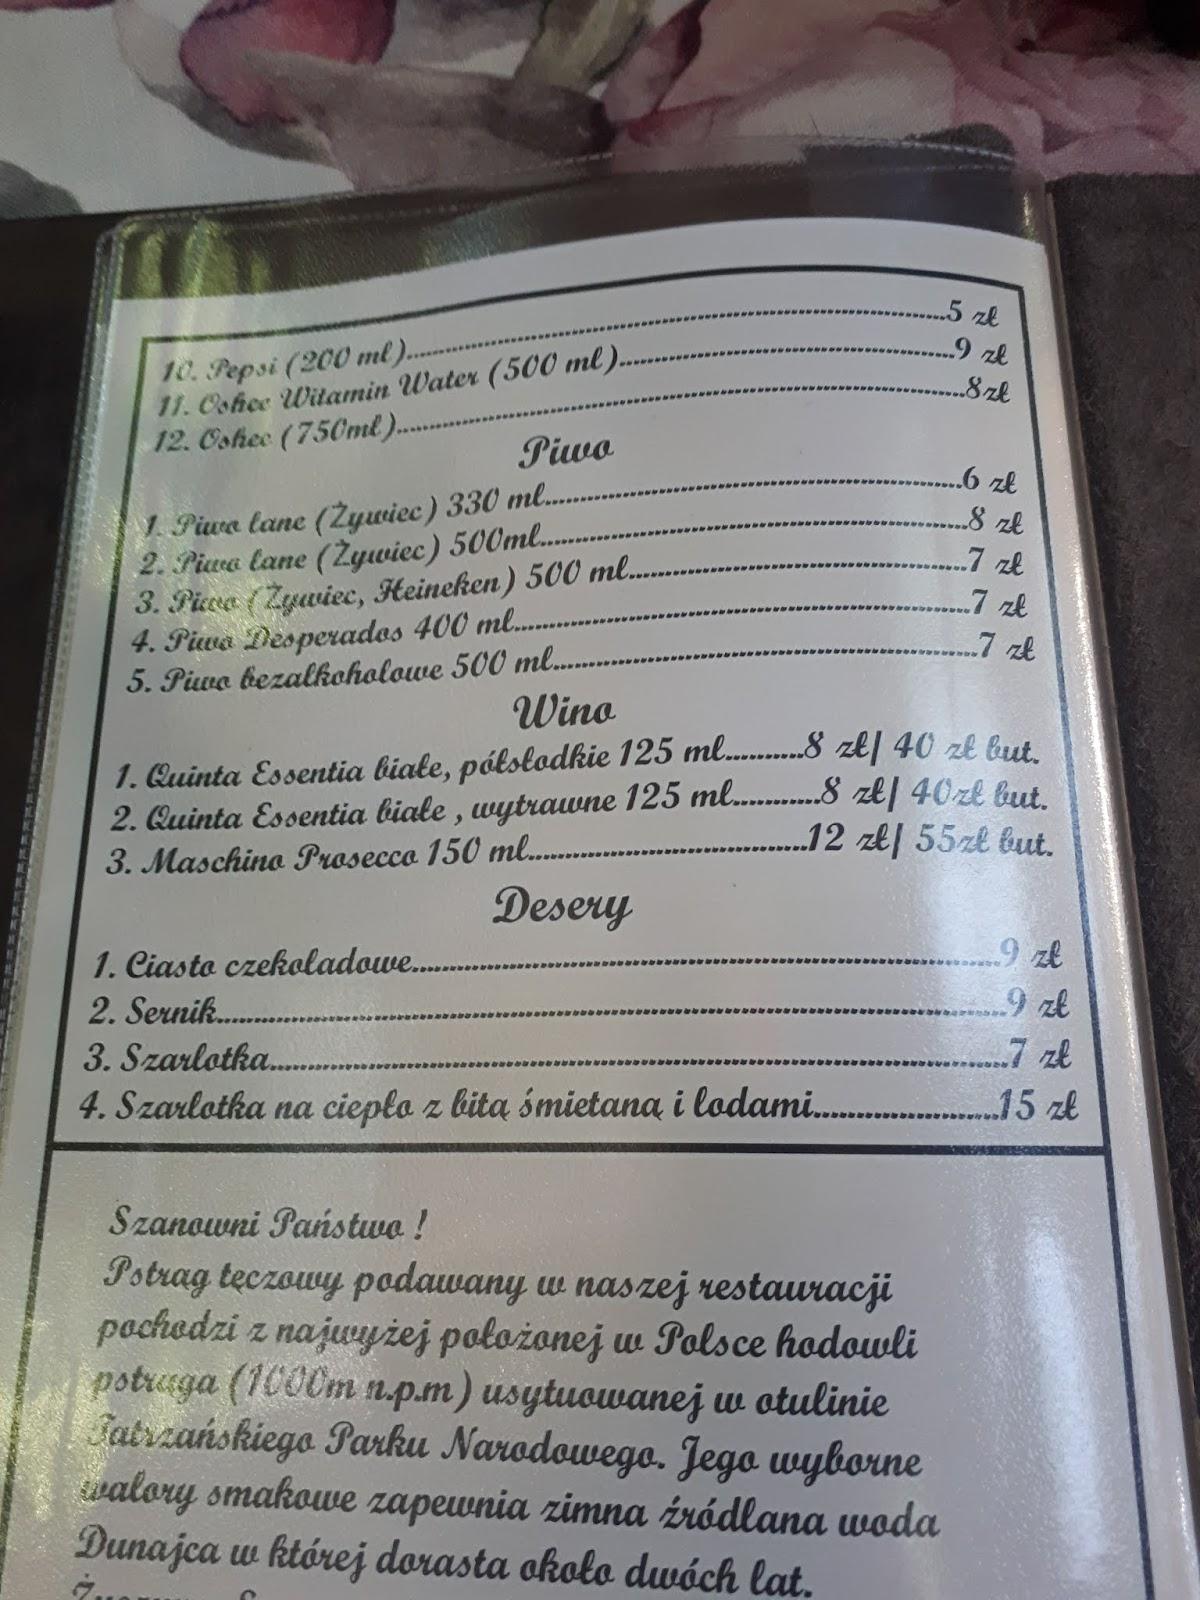 10. Pepsi (200 ml)..........5 zł
11. Oshee Witamin Water (500 ml)..........9 zł
12. Oshee (750ml)..........8zł
Piwo
1. Piwo lane (Żywiec) 330 ml..........6 zł
2. Piwo lane (Żywiec) 500ml..........8 zł
3. Piwo (Żywiec, Heineken) 500 ml..........7 zł
4. Piwo Desperados 400 ml..........7 zł
5. Piwo bezalkoholowe 500 ml..........7 zł
Wino
1. Quinta Essentia białe, półsłodkie 125 ml..........8 zł| 40 zł but.
2. Quinta Essentia białe , wytrawne 125 ml..........8 zł| 40zł but.
3. Maschino Prosecco 150 ml..........12 zł| 55zł but.
Desery
1. Ciasto czekoladowe..........9 zł
2. Sernik..........9 zł
3. Szarlotka..........7 zł
4. Szarlotka na ciepło z bitą śmietaną i lodami..........15 zł
Szanowni Państwo !
Pstrąg tęczowy podawany w naszej restauracji
pochodzi z najwyżej położonej w Polsce hodowli
pstrąga (1000m n.p.m) usytuowanej w otulinie
Tatrzańskiego Parku Narodowego. Jego wyborne
walory smakowe zapewnia zimna źródlana woda
Dunajca w której dorasta około dwóch lat.